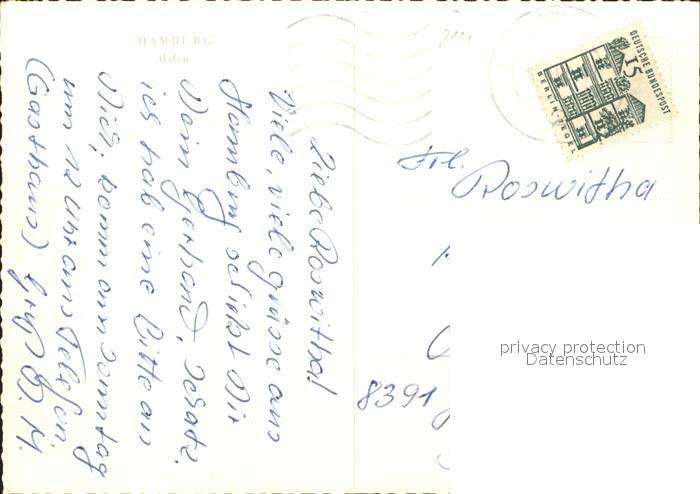 HAMBURG
Hafen
Liebe Roswitha!
Viele, viele grüsse aus
Hamburg schickt Dir
Dein Gerhard, Schatz,
ich hab eine Bitte an
Dich, komm am Sonntag
um 12 Uhr ans Telefon
(Gasthaus) Gruß
DEUTSCHE BUNDESPOST
15
BERLIN-TEGEL
Frl.
Roswitha
8391
privacy protection
Datenschutz